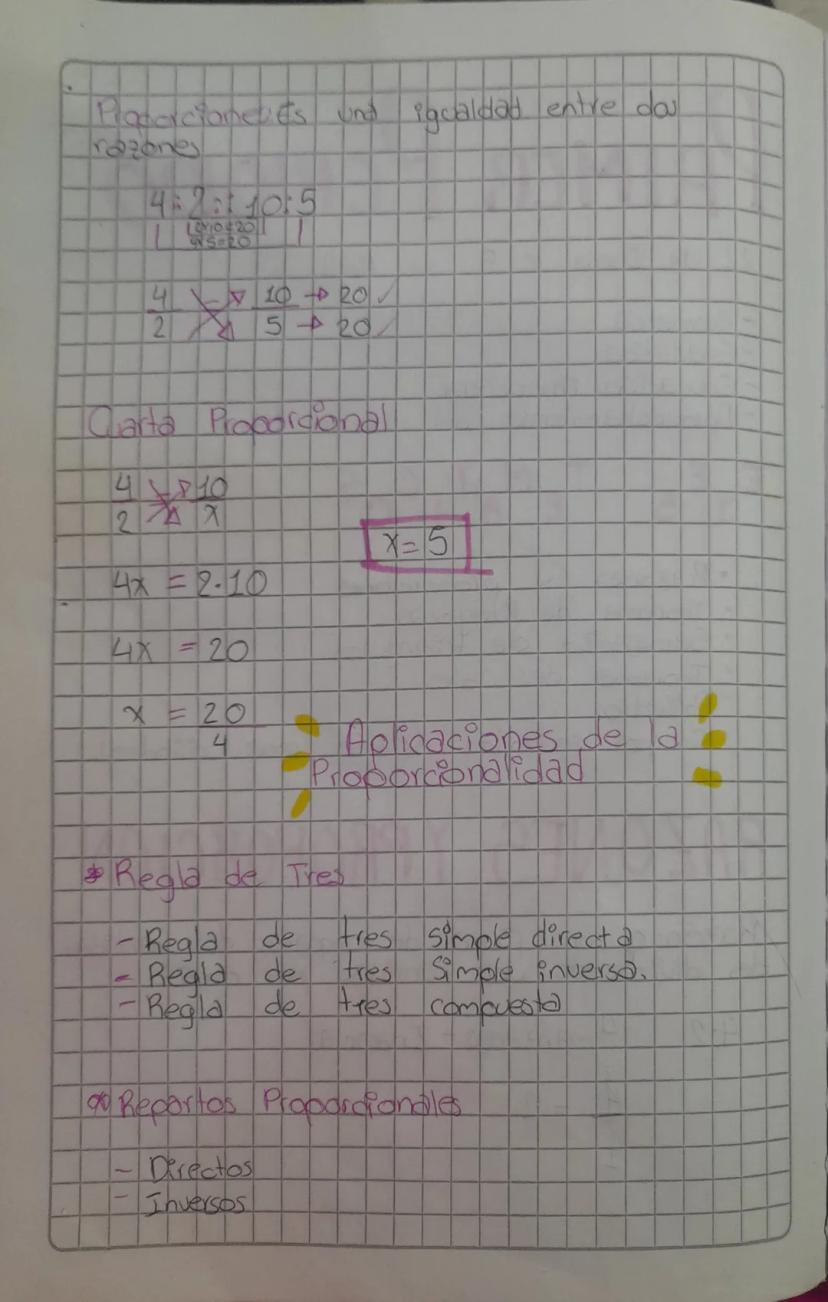 Proporciones: Es una igualdad entre dos
razones
4:2::10:5
2x10=20
4x5=20
4 10 → 20 ✓
2 5 → 20 ✓
Cuarta Proporcional
4 10
2 x
x = 5
4x = 2·10
4x = 20
x = 20
4
Aplicaciones de la
Proporcionalidad
* Regla de Tres
- Regla de tres simple directa
- Regla de tres simple inversa.
- Regla de tres compuesta
Repartos Proporcionales
- Directos
- Inversos